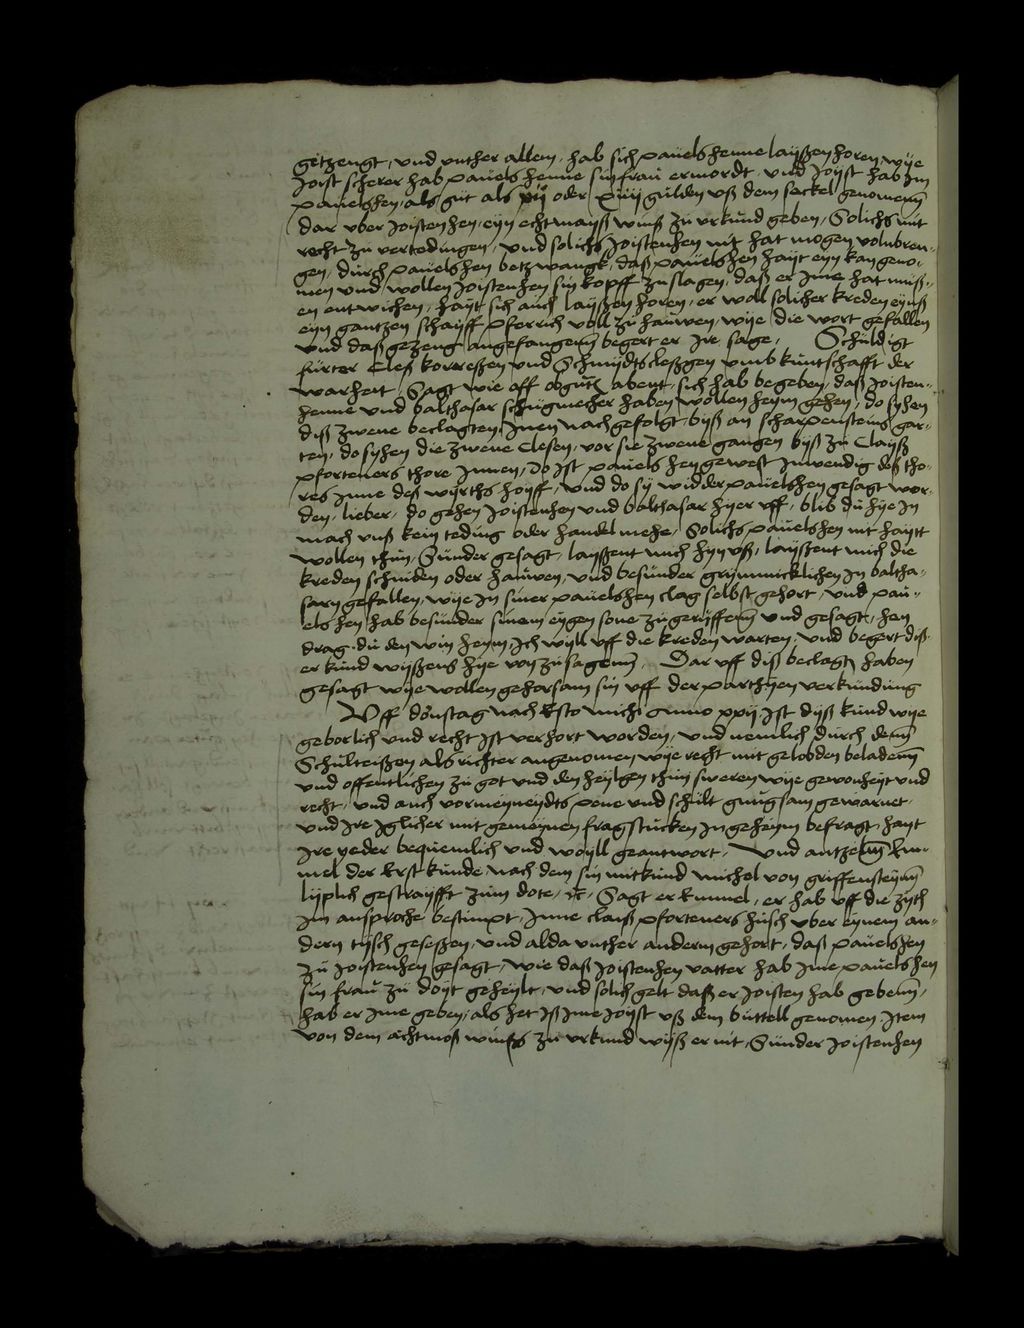 getzengt, und unther allem, hab sich pauelshenne layßen horen, wye
Joist scherer hab pauels henne sin frau ermordt, und Joyst hab Im
pauelshen, als gut als xij oder xiiij gulden uß dem seckel genomenn
dar uber Joistenhen, eyn echtmayß wins zu urkund geben, Solichs mit
recht zu vertedingen, und solichs Joistenhen nit hat mogen volnbren-
gen, durch pauelshen betzwangk, daß pauelshen hayt eyn kan geno-
men und wollen Joistenhen sin kopff zuslagen, daß er Ime hat muß-
en entwichen, hayt sich auch layßen horen, er woll solicher kreden eynß
eyn gantzen schayff pferrich voll zu hauwen, wye die wort gefallen
und daß gezeng angefangenn begert er Ire sage, Schuldigt
furter Cleß korreßen und Schmydtscleßgen umb kuntschafft der
warheit, Sagt wie uff abent, sich hab begeben, daß Joisten-
henne und balthasar schugmecher haben wollen heym gehen, do syhen
diß zwene beclagten Inen nachgefolgt, byß an scharpensteins gar-
ten, do syhen die zwene Clesen, vor sie zwene gangen byß zu Clayß
pforteners thore Innen, Do Ist pauels hen gewest Inwendig deß tho-
res Inne deß wyrths hoyff, und do sy widder pauelshen gesagt wor-
den, lieber, do gehen Joistenhen und balthasar hyer uff, blib du hye In
mach unß kein teding oder handel mehe, Solichs pauelshen nit haytt
wollen thun, Sunder gesagt, layßent mich hyn uß, layßent mich die
kreden schniden oder hauwen, und besunder grymmicklichen In baltha-
sarn gefallen, wye In siner pauelshen clag selbst gehort, und pau-
elshen hab besunder sinem eygen sone zugeruffenn und gesagt, hen
drag du den win heym, Ich wyll uff die kreden warten, und begert diß-
er kund wyßens hye von zusagenn, Dar uff diß beclagten haben
gesagt wye wollen gehorsam sin uff der parthyen verkundung
Uff donstag nach Esto michi anno xxij Ist dyß kund wye
geborlich und recht Ist verhort worden, und nemlich durch denn
Schulteißen als richter angenomen wye recht mit gelobden beladenn
und offentlichen zu got und den heylgen thun sweren wye gewonheyt und
recht, und auch vor meyneydts pene und schult gnugsam gewarnet,
und Ire Iglicher mit gemeynen fragstucken In geheym befragt, hayt
Ire yeder bequemlich und woyll geantwort, Und antzenn Em-
mel der Erst kunde, nach dem sin mitkund michel von griffensteynn
lyplich gestrayfft zum dote, etc, Sagt er Emmel, er hab uff die zyth
Im ansproche bestimpt, Inne clauß pforteners husch uber eynem an-
dern tysch geseßen, und alda unther andern gehort, daß pauelshen
zu Joistenhen gesagt, wie daß Joistenhen vatter hab Ime pauelshen
sin frau zu doyt geheylt, und solich gelt daß er Joisten hab gebenn,
hab er Ime geben, als het Iß Ime Joyst uß dem buttell genomen, Item
von dem achtmoß winß zu urkund wyß er nit, Sunder Joistenhen